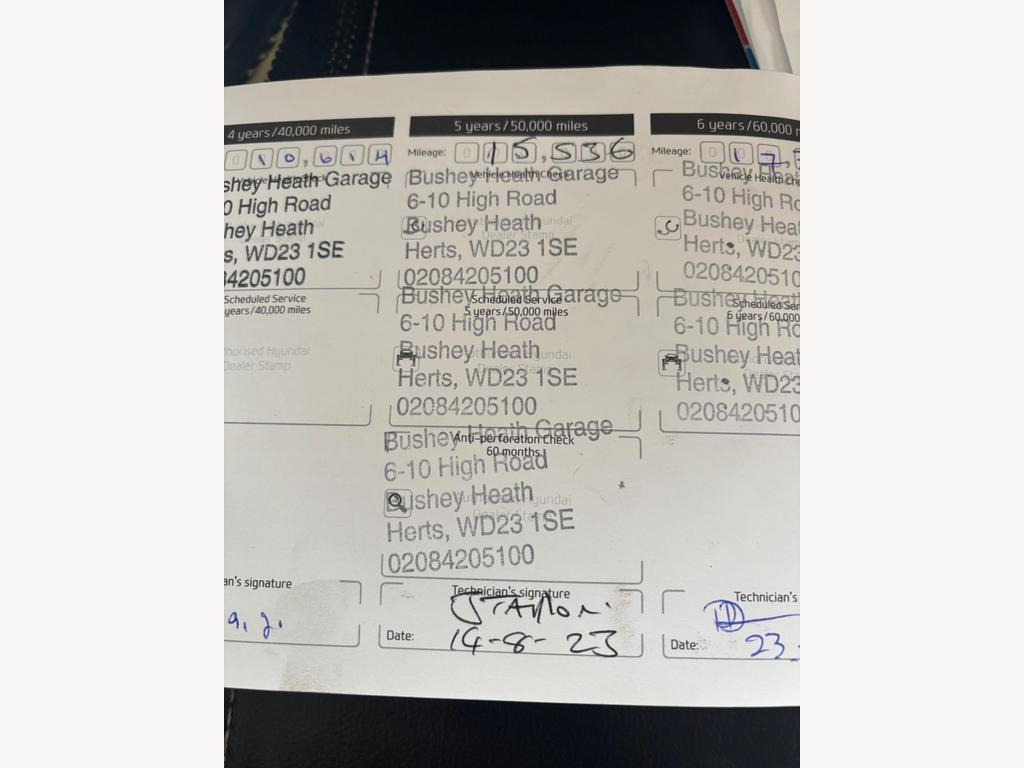 4 years/40,000 miles
0 1 0 , 6 1 4
shey Heath Garage
0 High Road
hey Heath
s, WD23 1SE
84205100
Scheduled Service
years/40,000 miles
thorised Hyundai
Dealer Stamp
an's signature
5 years/50,000 miles
Mileage: 0 1 5 , 5 3 6
Vehicle Health Check
Bushey Heath Garage
6-10 High Road
Bushey Heath
Herts, WD23 1SE
02084205100
Scheduled Service
5 years/50,000 miles
Bushey Heath Garage
6-10 High Road
Bushey Heath
Herts, WD23 1SE
02084205100
Anti-perforation Check
60 months
Bushey Heath Garage
6-10 High Road
Bushey Heath
Herts, WD23 1SE
02084205100
Technician's signature
J Taylor.
Date: 14-8-23
6 years/60,000 m
Mileage: 0 1 7 ,
Vehicle Health Che
Bushey Heat
6-10 High Ro
Bushey Heat
Herts, WD23
0208420510
Scheduled Ser
6 years/60,000
Bushey Heat
6-10 High Ro
Bushey Heat
Herts, WD23
0208420510
Technician's
Date: 23